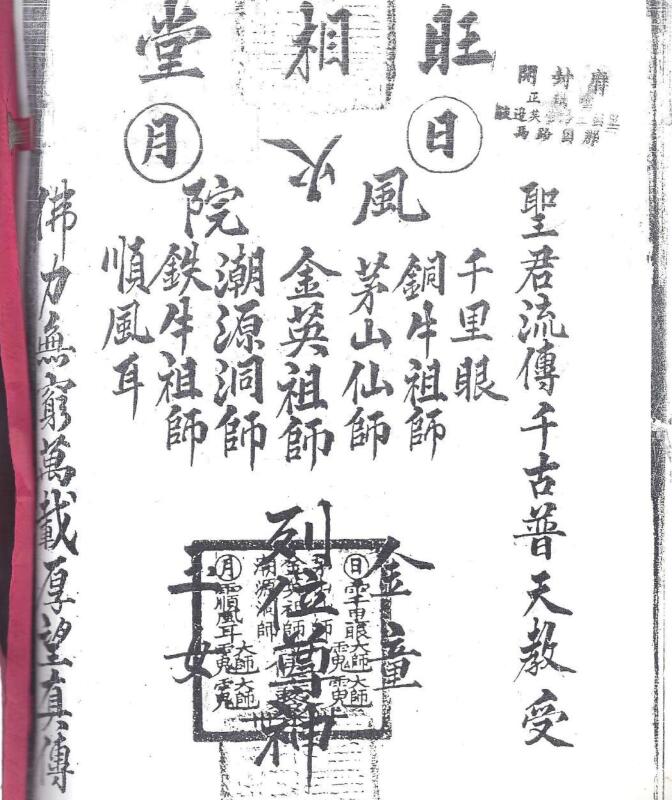 旺相堂
府封開
日
月
風火院
聖君流傳千古普天教受
千里眼
銅牛祖師
茅山仙師
金英祖師
潮源洞師
鉄牛祖師
順風耳
佛力無窮萬載厚望真傳
金童
列位尊神
玉女
日
月